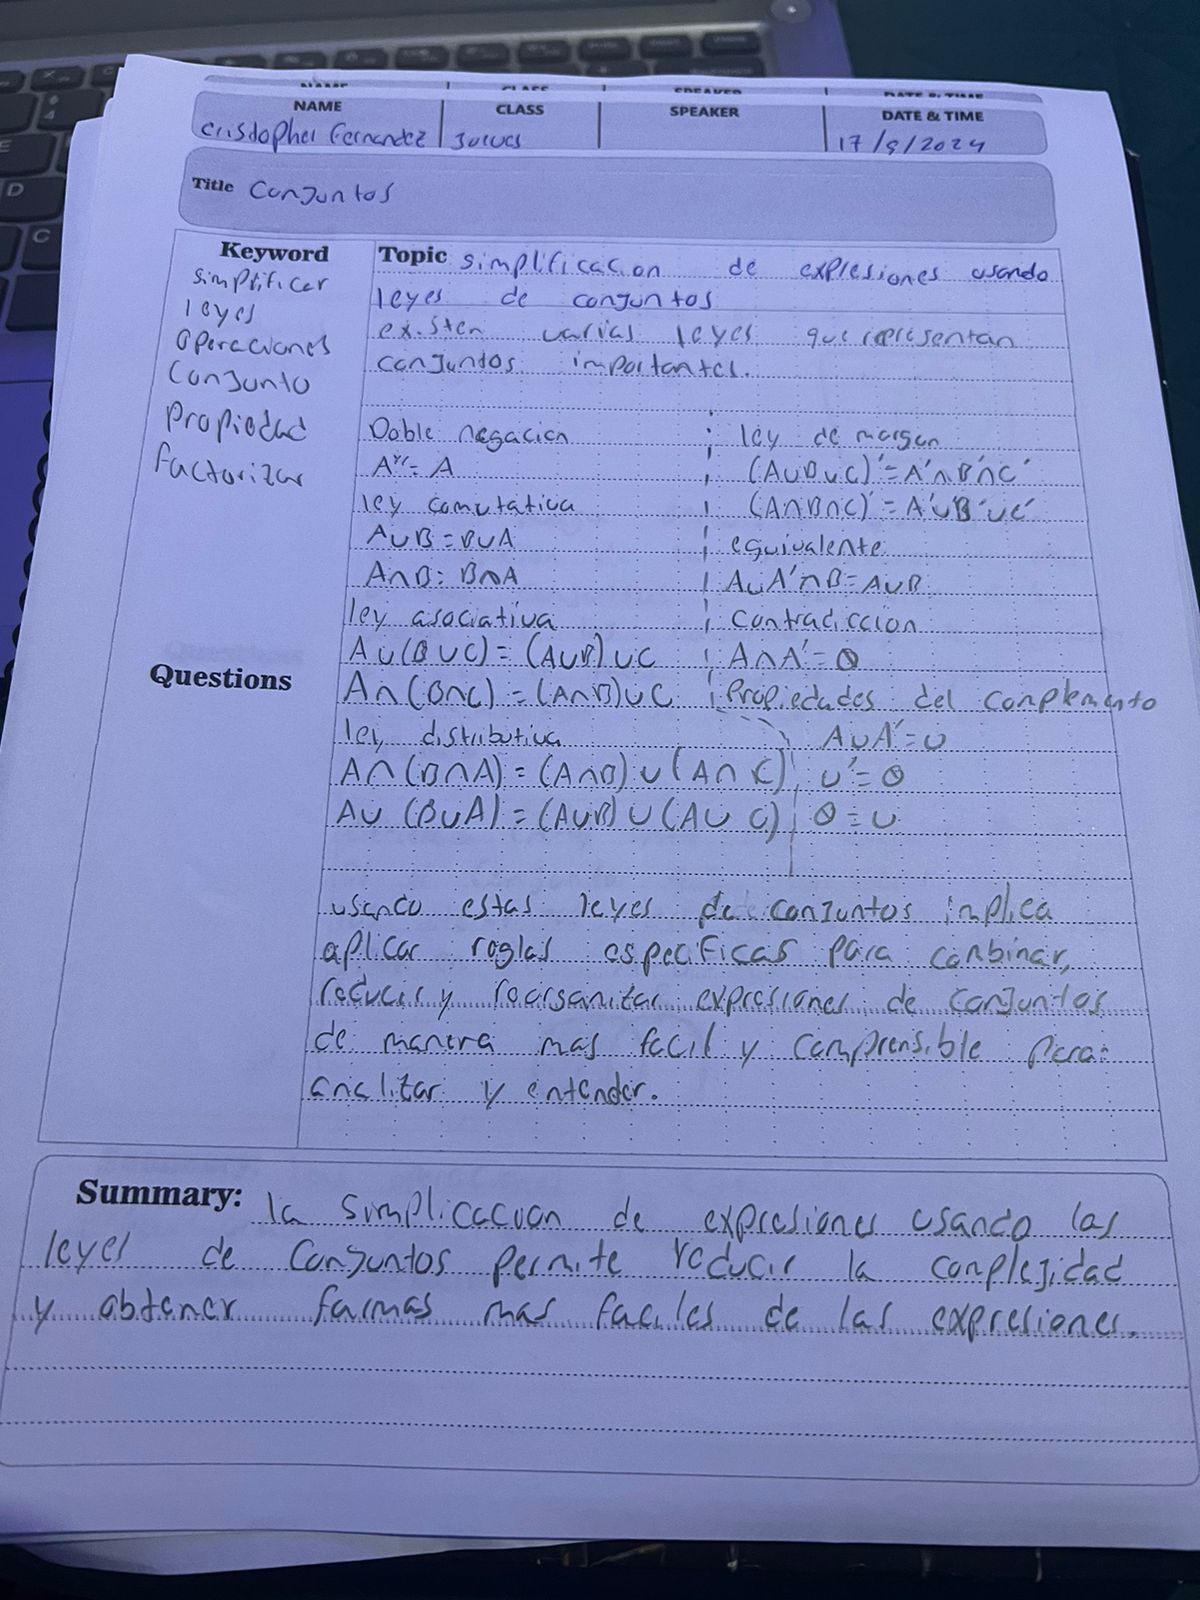 NAME CLASS SPEAKER DATE & TIME
NAME CLASS SPEAKER DATE & TIME
Cristopher Fernandez Jueves 17/9/2024
Title Conjuntos
Keyword
simplificar
leyes
operaciones
Conjunto
Propiedad
factorizar
Questions
Topic simplificacion de expresiones usando
leyes de conjuntos
existen varias leyes que representan
conjuntos importantes.
Doble negacion
A''= A
ley comutativa
A∪B = B∪A
A∩B = B∩A
ley asociativa
A∪(B∪C) = (A∪B)∪C
A∩(B∩C) = (A∩B)∪C
ley distributiva
A∩(B∩A) = (A∩B)∪(A∩C)
A∪(B∪A) = (A∪B)∪(A∪C)
ley de morgan
(A∪B∪C)'=A'∩B'∩C'
(A∩B∩C)'=A'∪B'∪C'
equivalente
A∪A'∩B=A∪B
Contradiccion
A∩A'=Ø
Propiedades del complemento
A∪A'=U
U'=Ø
Ø=U
usando estas leyes de conjuntos implica
aplicar reglas especificas para combinar,
reducir y reorganizar expresiones de conjuntos
de manera mas facil y comprensible para
analizar y entender.
Summary: la simplicacion de expresiones usando las
leyes de Conjuntos permite reducir la complejidad
y obtener formas mas faciles de las expresiones.